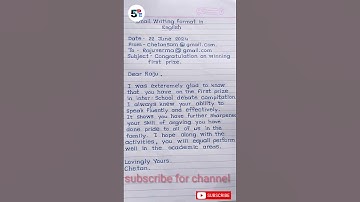 Email Writing Format in
English
Date:- 22 June 2024
From:- Chetantam@gmail.com
To :- Rajuverma@gmail.com
Subject:- Congratulation on winning
first prize.
Dear Raju,
I was exteremely glad to know
that you have on the first prize
in inter-School debate Compitation
I always knew your ability to
Speak fluently and effectively.
It shows you have further sharpened
your skill of argving. you have
done pride to all of us in the
family. I hope along with the
activities, you will equall perform
well in the academic areas.
Lovingly Yours
Chetan.
subscribe for channel
SUBSCRIBE